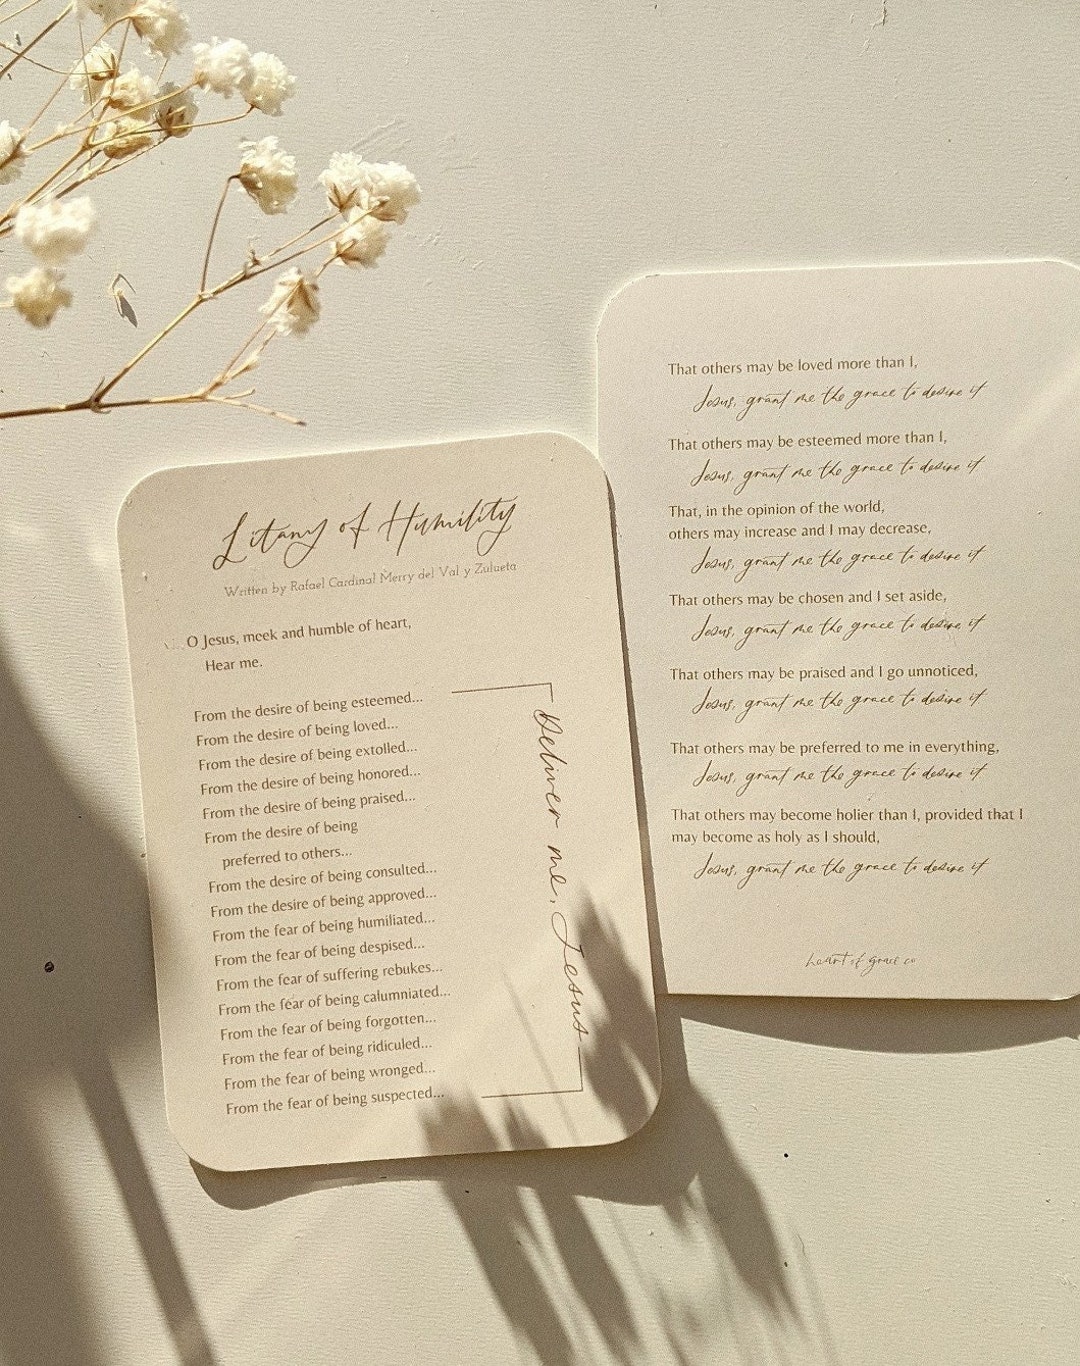 Litany of Humility
Written by Rafael Cardinal Merry del Val y Zulueta
O Jesus, meek and humble of heart,
Hear me.
From the desire of being esteemed...
From the desire of being loved...
From the desire of being extolled...
From the desire of being honored...
From the desire of being praised...
From the desire of being
preferred to others...
From the desire of being consulted...
From the desire of being approved...
From the fear of being humiliated...
From the fear of being despised...
From the fear of suffering rebukes...
From the fear of being calumniated...
From the fear of being forgotten...
From the fear of being ridiculed...
From the fear of being wronged...
From the fear of being suspected...
Deliver me, Jesus
That others may be loved more than I,
Jesus, grant me the grace to desire it
That others may be esteemed more than I,
Jesus, grant me the grace to desire it
That, in the opinion of the world,
others may increase and I may decrease,
Jesus, grant me the grace to desire it
That others may be chosen and I set aside,
Jesus, grant me the grace to desire it
That others may be praised and I go unnoticed,
Jesus, grant me the grace to desire it
That others may be preferred to me in everything,
Jesus, grant me the grace to desire it
That others may become holier than I, provided that I
may become as holy as I should,
Jesus, grant me the grace to desire it
heart of grace co